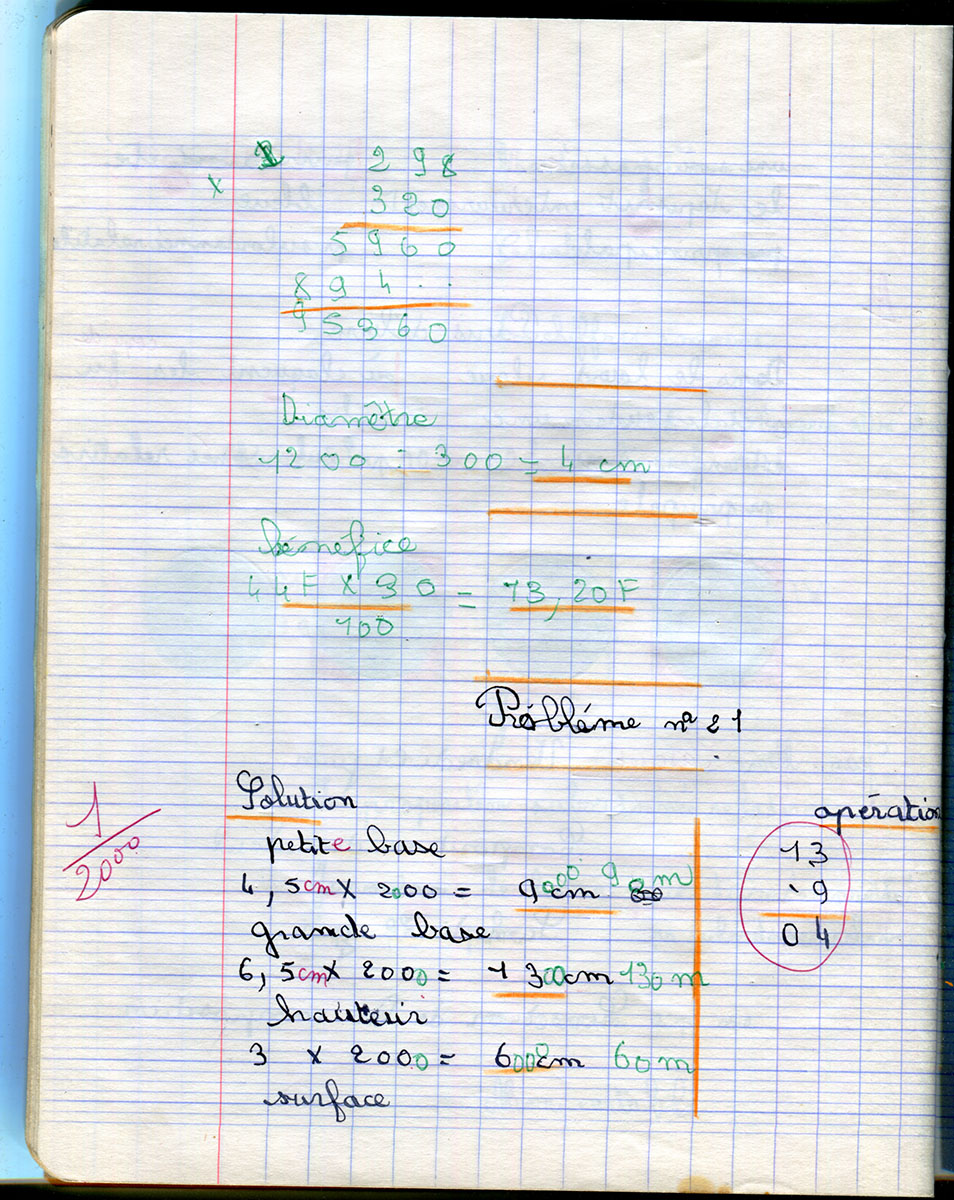 298
x 320
5960
894..
95360
Diamètre
1200 : 300 = 4 cm
bénéfice
44F x 30 = 13,20F
100
Probléme n° 21
Solution
opération
petite base
1
2000
13
4,5cm x 2000 = 9000cm 90m
9
grande base
04
6,5cm x 2000 = 1300cm 130m
hauteur
3 x 2000 = 6000cm 60m
surface